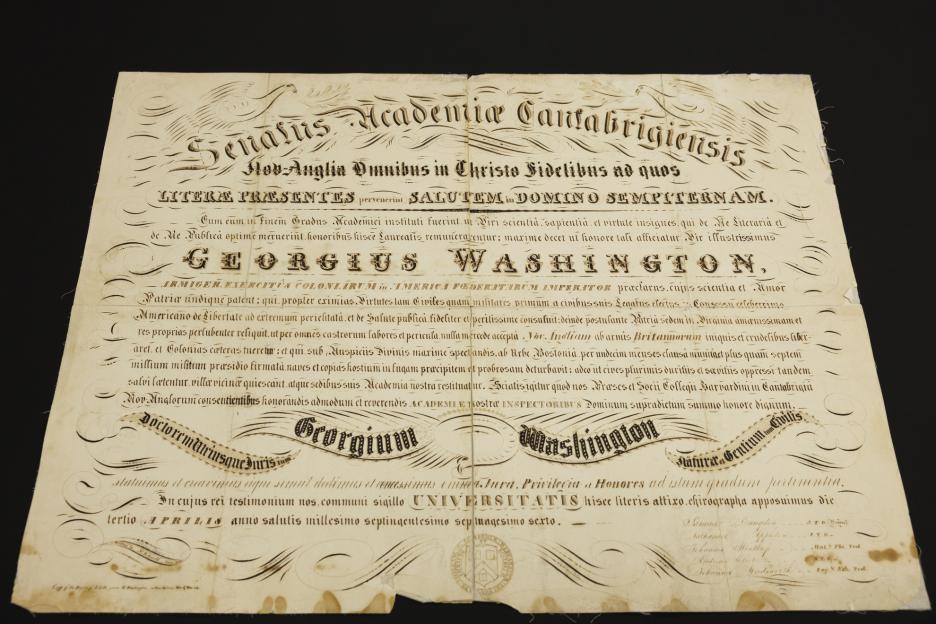 Senatus Academiæ Cantabrigiensis
Nov-Anglia Omnibus in Christo Fidelibus ad quos
LITERÆ PRÆSENTES pervenerint SALUTEM in DOMINO SEMPITERNAM.
Cum eum in Finem Gradus Academici instituti fuerint ut Viri scientia, sapientia et virtute insignes, qui de Re Literaria et
de Re Publica optime meruerint, honoribus hisce Laureatis remunerarentur; maxime decet ut honore tali afficiatur Vir illustrissimus
GEORGIUS WASHINGTON,
ARMIGER. EXERCITUS COLONIARUM in AMERICA FŒDERATARUM IMPERATOR præclarus, cujus scientia et Amor
Patriæ undique patent; qui, propter eximias Virtutes tam Civiles quam militares primum a civibus suis Legatus electus, in Consessu celeberrimo
Americano de Libertate ad extremum periclitata, et de Salute publica, fideliter et peritissime consuluit; deinde postulante Patria sedem in Virginia amœnissimam et
res proprias perlubenter reliquit, ut per omnes castrorum labores et pericula, nulla mercede accepta Nov. Angliam ab armis Britannorum iniquis et crudelibus liber-
aret, et Colonias cæteras tueretur; et qui sub Auspiciis Divinis maxime spectandis, ab Urbe Bostonia, per undecim menses clausa munita, et plus quam septem
millium militum præsidio firmata, naves et copias hostium in fugam præcipitem et probrosam deturbavit; adeo ut cives plurimis duritiis et sævitiis oppressi tandem
salvi lætentur, villæ vicinæ quiescant, atque sedibus suis Academia nostra restituatur. Sciatis igitur quod nos Præses et Socii Collegii Harvardini in Cantabrigia
Nov Anglorum consentientibus honorandis admodum et reverendis ACADEMIÆ nostræ INSPECTORIBUS Dominum supradictum summo honore dignum,
Doctorem Utriusque Juris tum Georgium Washington Naturæ et Gentium, tum Civilis
statuimus et creavimus, eique simul dedimus et concessimus omnia Jura, Privilegia et Honores ad istum gradum pertinentia.
In cujus rei testimonium nos, communi sigillo UNIVERSITATIS hisce literis affixo, chirographa apposuimus die
tertio APRILIS anno salutis millesimo septingentesimo septuagesimo sexto.
Samuel Langdon S.T.D.
Nathaniel Appleton S.T.D.
Johannes Winthrop Mat. & Phi. Prof.